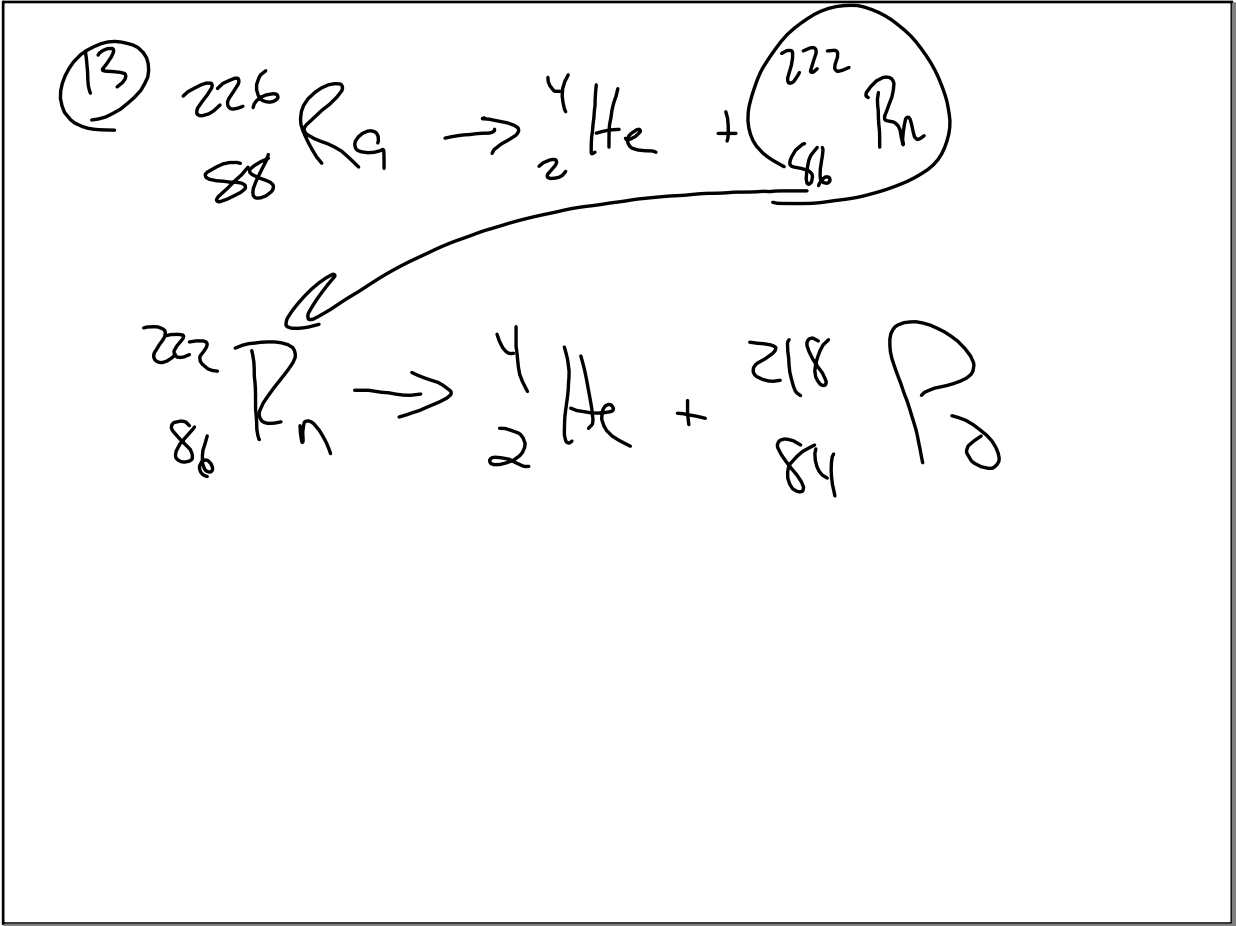 13 ²²⁶₈₈Ra → ⁴₂He + ²²²₈₆Rn
²²²₈₆Rn → ⁴₂He + ²¹⁸₈₄Po